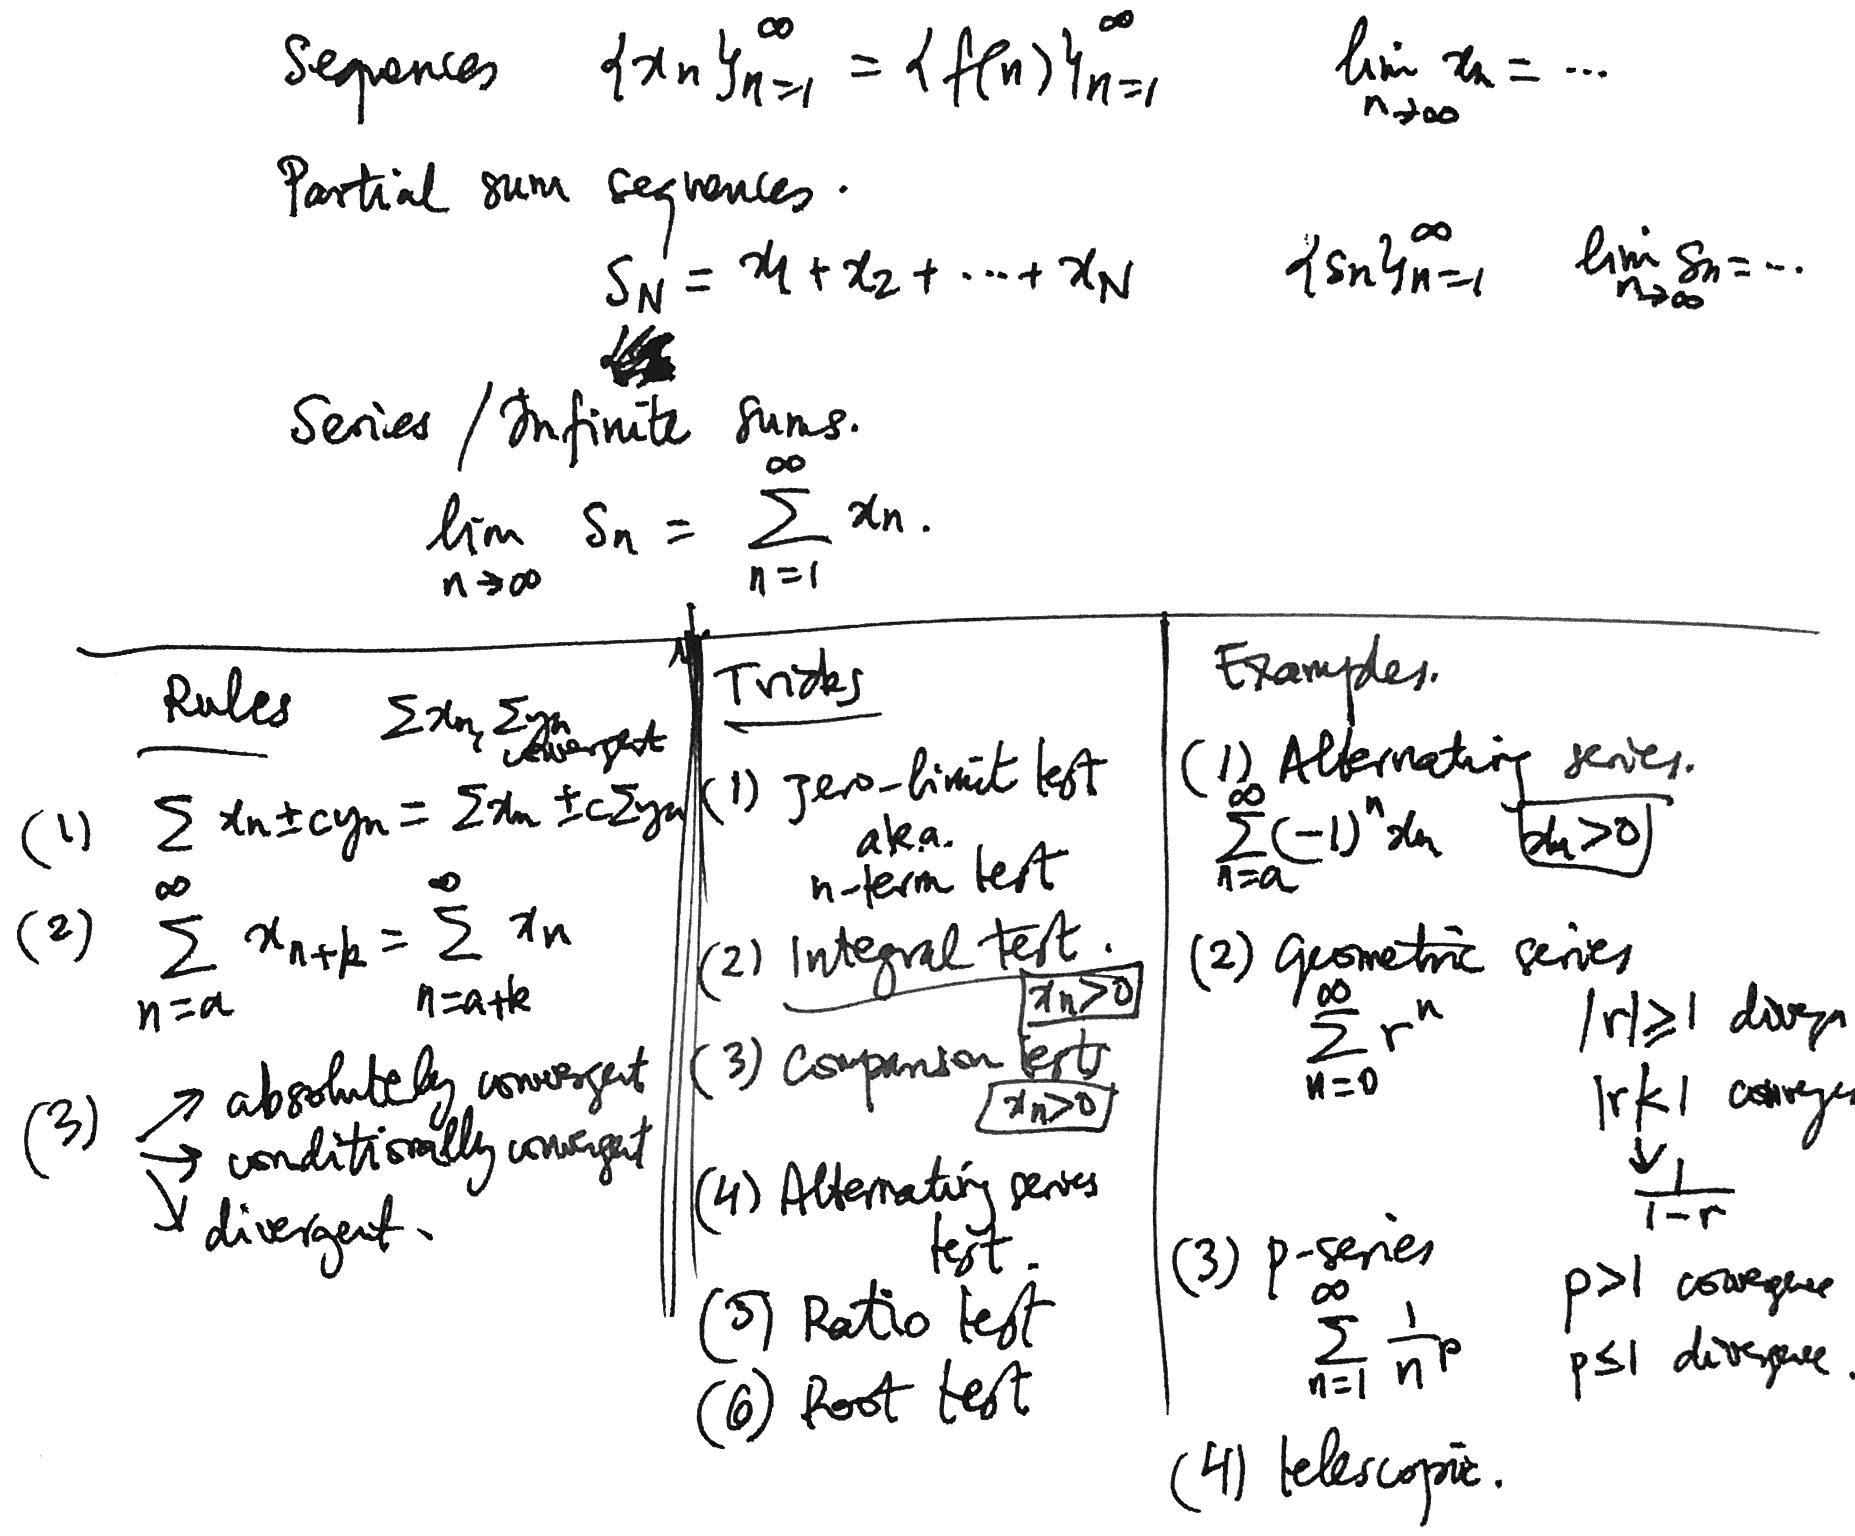 Sequences {xn}∞n=1 = {f(n)}∞n=1 lim n→∞ xn = ...
Partial sum sequences.
SN = x1 + x2 + ... + xN {sn}∞n=1 lim n→∞ Sn = ...
Series / Infinite sums.
lim n→∞ Sn = ∑∞n=1 xn.
Rules ∑xn, ∑yn
convergent
(1) ∑ xn ± cyn = ∑xn ± c∑yn
(2) ∑∞n=a xn+k = ∑∞n=a+k xn
(3) ↗ absolutely convergent
→ conditionally convergent
↘ divergent.
Tricks
(1) zero-limit test
a.k.a.
n-term test
(2) Integral test.
xn>0
(3) Comparison tests
xn>0
(4) Alternating series
test.
(5) Ratio test
(6) Root test
Examples.
(1) Alternating series.
∑∞n=a (-1)^n xn xn>0
(2) Geometric series
∑∞n=0 r^n |r|≥1 diverge
|r|<1 converge
↓
1/(1-r)
(3) p-series
∑∞n=1 1/n^p p>1 convergence
p≤1 divergence.
(4) telescopic.